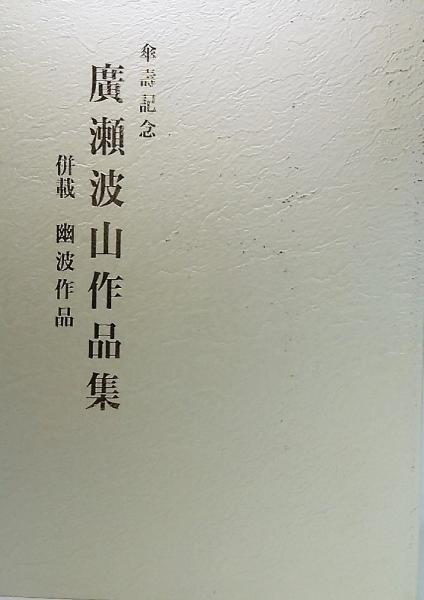 傘壽記念
廣瀬波山作品集
併載 幽波作品